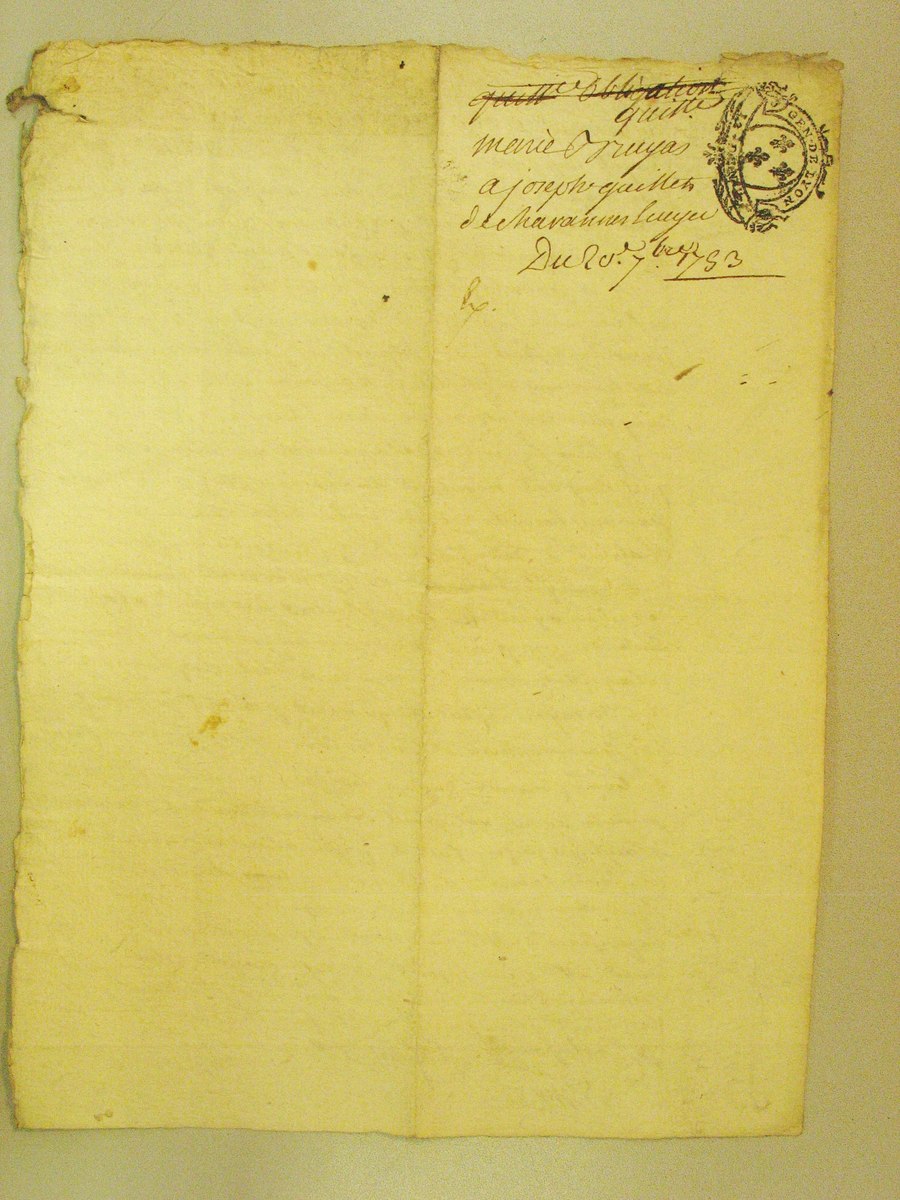 quitt.ce obligation
quitt.ce
marie Bruyas
a joseph guillet
de chavannes
Du 20.e 7.bre 1753
Ex.
GEN · DE LYON